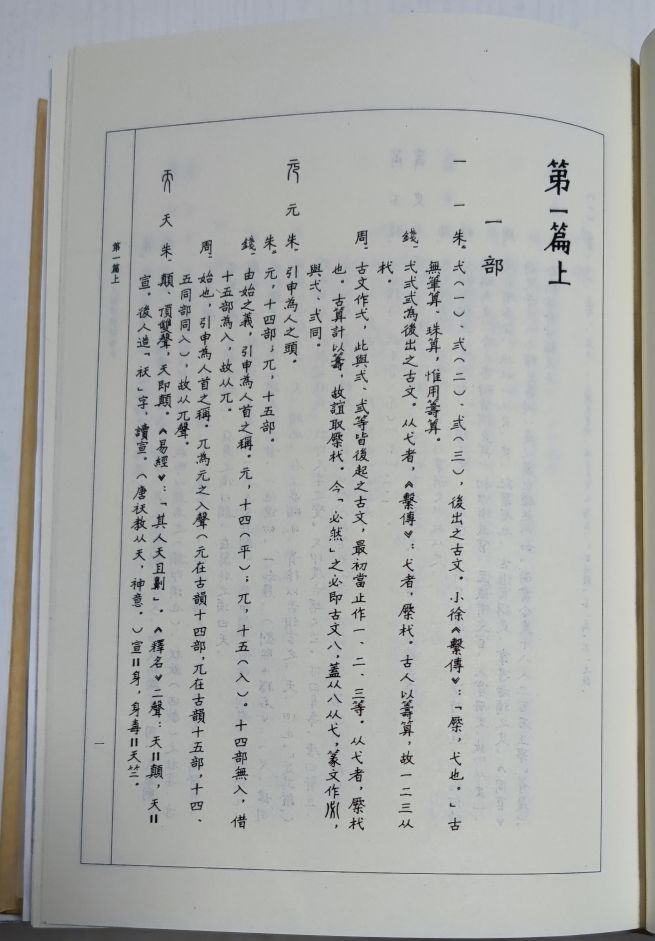 第一篇上
一部
一 一 朱、弌（一）、弍（二）、弎（三），後出之古文。小徐《繫傳》：「橜，弋也。」古
無筆算、珠算，惟用籌算。
錢、弌弍弎為後出之古文。从弋者，《繫傳》：弋者，橜杙。古人以籌算，故一二三从
杙。
周、古文作弌，此與弍、弎等皆後起之古文，最初當止作一、二、三等。从弋者，橜杙
也。古算計以籌，故誼取橜杙。今「必然」之必即古文八，蓋从八从弋，篆文作，
與弌、弍同。
元 朱、引申為人之頭。
朱、元，十四部；兀，十五部。
錢、由始之義，引申為人首之稱。元，十四（平）；兀，十五（入）。十四部無入，借
十五部為入，故从兀。
周、始也，引申為人首之稱。兀為元之入聲（元在古韻十四部，兀在古韻十五部，十四、
五同部同入），故从兀聲。
天 朱、顛、頂雙聲，天即顛。《易經》：「其人天且劓」。《釋名》二聲：天＝顛，天＝
宣。後人造「祆」字，讀宣。（唐祆教从天，神意。）宣＝身，身毒＝天竺。
第一篇上
一